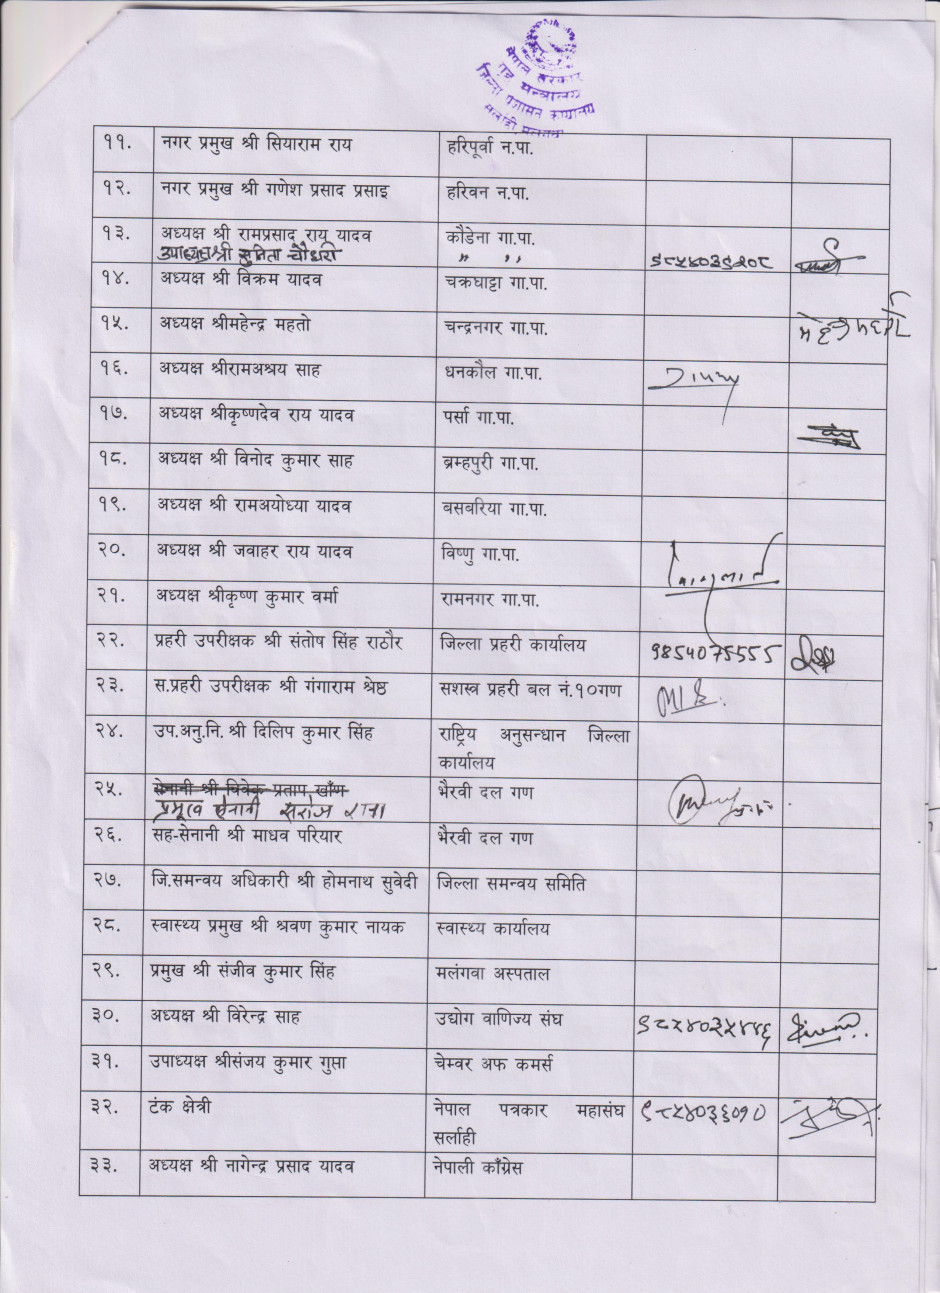 नेपाल सरकार
गृह मन्त्रालय
जिल्ला प्रशासन कार्यालय
सर्लाही मलंगवा
११. नगर प्रमुख श्री सियाराम राय हरिपूर्वा न.पा.
१२. नगर प्रमुख श्री गणेश प्रसाद प्रसाइ हरिवन न.पा.
१३. अध्यक्ष श्री रामप्रसाद राय यादव कौडेना गा.पा.
उपाध्यक्ष श्री सुमिता चौधरी " " ९८५४०३९२०८
१४. अध्यक्ष श्री विक्रम यादव चक्रघाट्टा गा.पा.
१५. अध्यक्ष श्रीमहेन्द्र महतो चन्द्रनगर गा.पा.
१६. अध्यक्ष श्रीरामअश्रय साह धनकौल गा.पा.
१७. अध्यक्ष श्रीकृष्णदेव राय यादव पर्सा गा.पा.
१८. अध्यक्ष श्री विनोद कुमार साह ब्रम्हपुरी गा.पा.
१९. अध्यक्ष श्री रामअयोध्या यादव बसबरिया गा.पा.
२०. अध्यक्ष श्री जवाहर राय यादव विष्णु गा.पा.
२१. अध्यक्ष श्रीकृष्ण कुमार वर्मा रामनगर गा.पा.
२२. प्रहरी उपरीक्षक श्री संतोष सिंह राठौर जिल्ला प्रहरी कार्यालय 9854075555
२३. स.प्रहरी उपरीक्षक श्री गंगाराम श्रेष्ठ सशस्त्र प्रहरी बल नं.१०गण
२४. उप.अनु.नि. श्री दिलिप कुमार सिंह राष्ट्रिय अनुसन्धान जिल्ला
कार्यालय
२५. सेनानी श्री विवेक प्रताप खाँण भैरवी दल गण
प्रमूख सेनानी सरोज राना
२६. सह-सेनानी श्री माधव परियार भैरवी दल गण
२७. जि.समन्वय अधिकारी श्री होमनाथ सुवेदी जिल्ला समन्वय समिति
२८. स्वास्थ्य प्रमुख श्री श्रवण कुमार नायक स्वास्थ्य कार्यालय
२९. प्रमुख श्री संजीव कुमार सिंह मलंगवा अस्पताल
३०. अध्यक्ष श्री विरेन्द्र साह उद्योग वाणिज्य संघ ९८५४०३५४४६
३१. उपाध्यक्ष श्रीसंजय कुमार गुप्ता चेम्वर अफ कमर्स
३२. टंक क्षेत्री नेपाल पत्रकार महासंघ ९८५४०३६०१०
सर्लाही
३३. अध्यक्ष श्री नागेन्द्र प्रसाद यादव नेपाली काँग्रेस